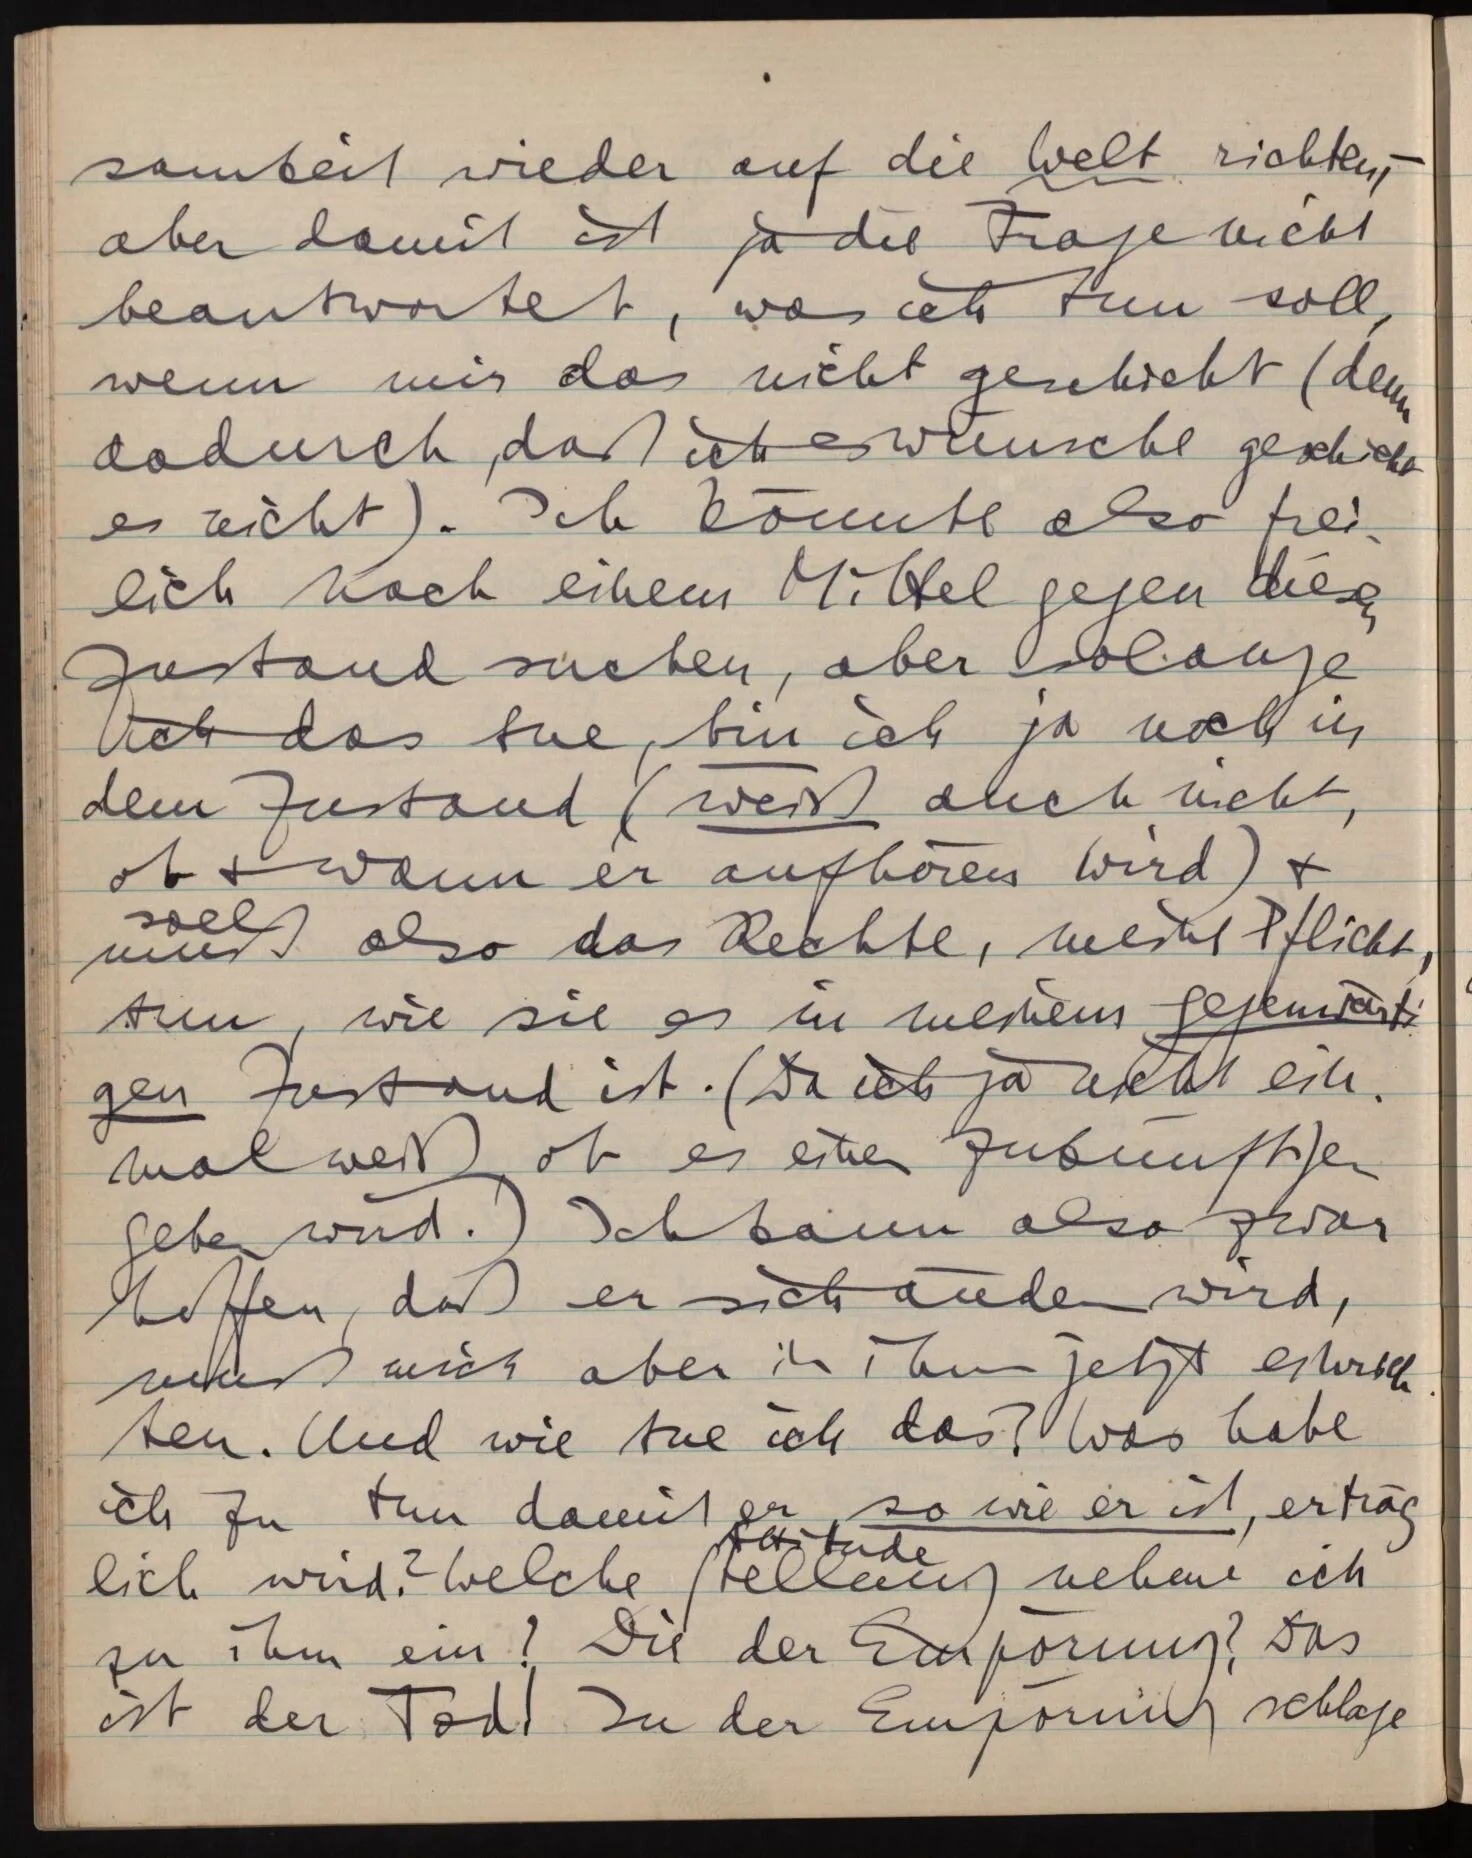 samkeit wieder auf die Welt richten,
aber damit ist ja die Frage nicht
beantwortet, was ich tun soll,
wenn mir das nicht geschieht (denn
dadurch, daß ich es wünsche geschieht
es nicht). Ich könnte also frei-
lich nach einem Mittel gegen diesen
Zustand suchen, aber solange
ich das tue, bin ich ja noch in
dem Zustand (weiß auch nicht,
ob + wann er aufhören wird) +
soll
muß also das Rechte, meine Pflicht,
tun, wie sie es in meinem gegenwärti
gen Zustand ist. (Da ich ja nicht ein-
mal weiß, ob es einen zukünftigen
geben wird.) Ich kann also zwar
hoffen, daß er sich ändern wird,
muß mich aber in ihm jetzt einrich
ten. Und wie tue ich das? Was habe
ich zu tun damit er, so wie er ist, erträg
lich wird? Welche
Attitude
Stellung nehme ich
zu ihm ein? Die der Empörung? Das
ist der Tod! In der Empörung schlage